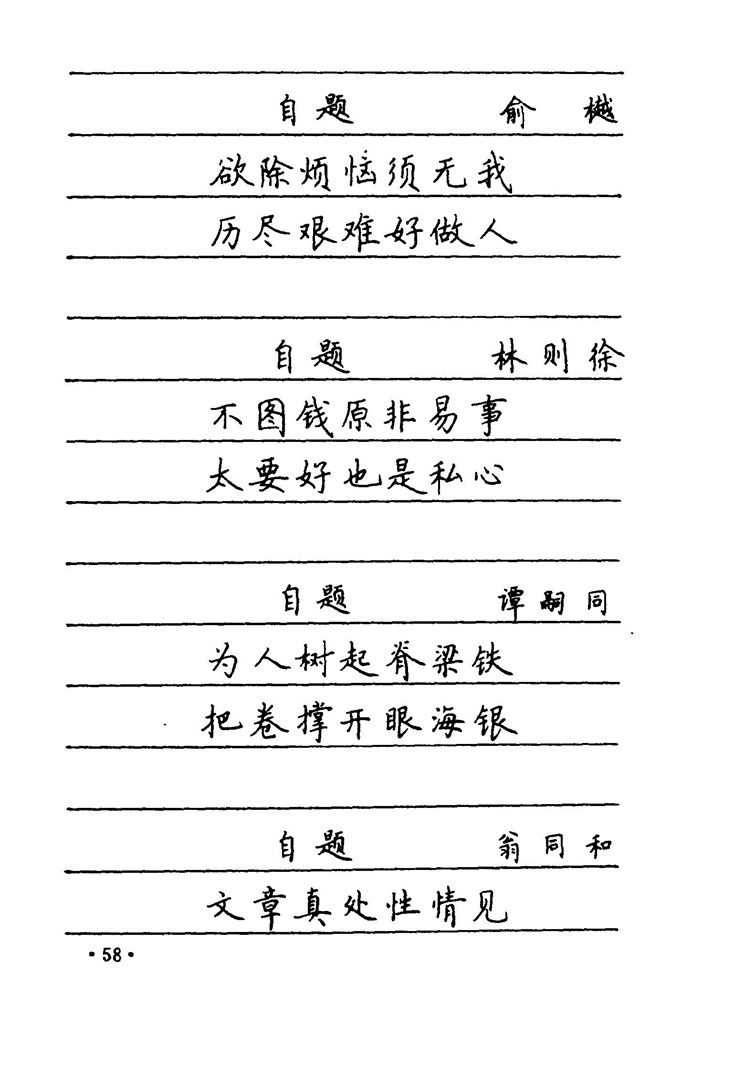 自题 俞樾
欲除烦恼须无我
历尽艰难好做人
自题 林则徐
不图钱原非易事
太要好也是私心
自题 谭嗣同
为人树起脊梁铁
把卷撑开眼海银
自题 翁同和
文章真处性情见
·58·